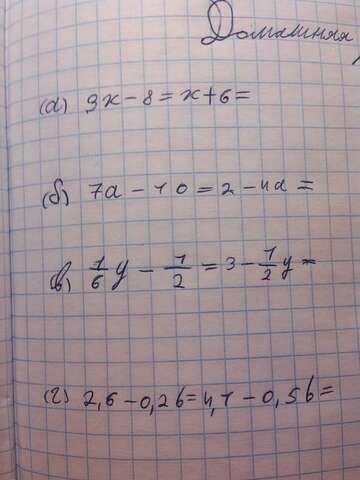 Домашняя
(а) 9x - 8 = x + 6 =
(б) 7a - 10 = 2 - 4a =
(в) 1/6 y - 1/2 = 3 - 1/2 y =
(г) 2,6 - 0,2b = 4,1 - 0,5b =